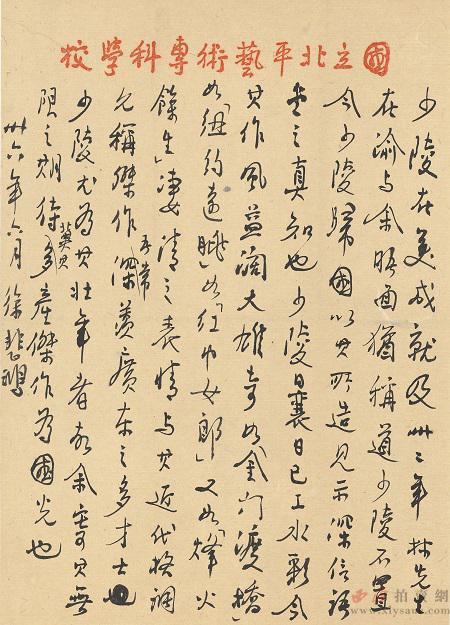 國立北平藝術專科學校
少陵在美成就及卅二年林先生
在渝与余晤面猶稱道少陵不置
今少陵歸國以其所造見示深信語
堂之真知也少陵曩日已工水彩今
其作風益闊大雄奇如「金门渡橋」
如「紐約遠眺」如「紅巾女郎」又如「烽火
餘生」凄清之表情与其近代格調
允稱傑作吾常深羡廣東之多才士也
少陵尤為其壯年者故余寄以無
限之期待冀其多產傑作為國光也
卅六年六月 徐悲鴻
西泠拍賣網